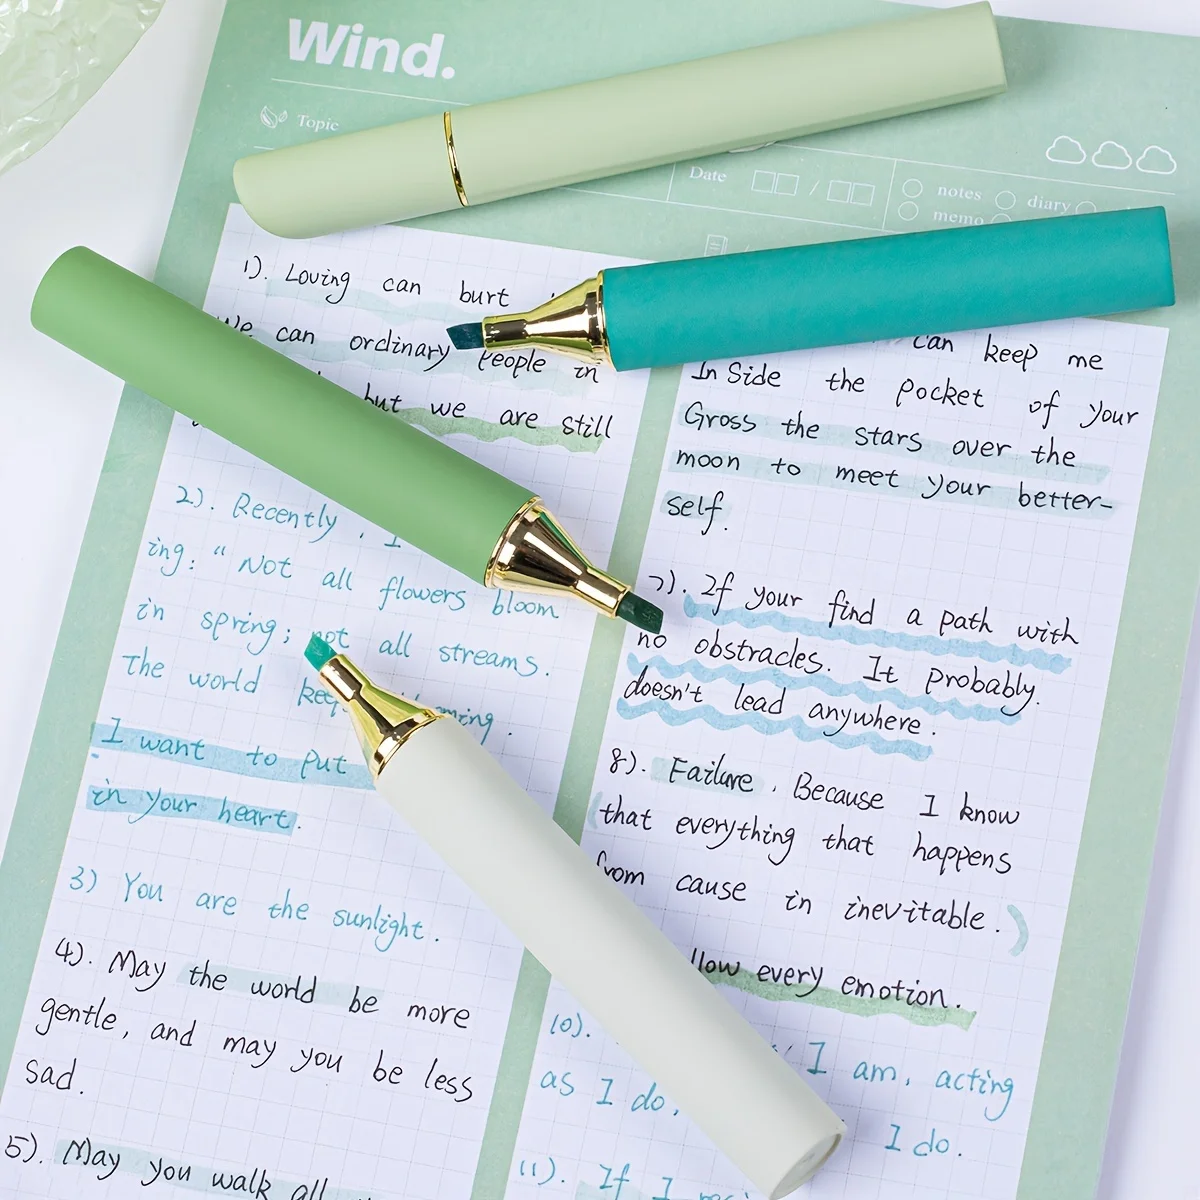 Wind.
Topic
Date / notes diary
memo
1). Loving can burt
We can ordinary people in
but we are still
2). Recently, I
ing: “Not all flowers bloom
in spring; not all streams.
The world
I want to put
in your heart.
3) You are the sunlight.
4). May the world be more
gentle, and may you be less
sad.
5). May you walk all
can keep me
InSide the pocket of your
Gross the stars over the
moon to meet your better-
self.
7). If your find a path with
no obstracles. It probably.
doesn't lead anywhere.
8). Failure. Because I know
that everything that happens
from cause in inevitable.
every emotion.
10). I am, acting
as I do, I do.
11). If I